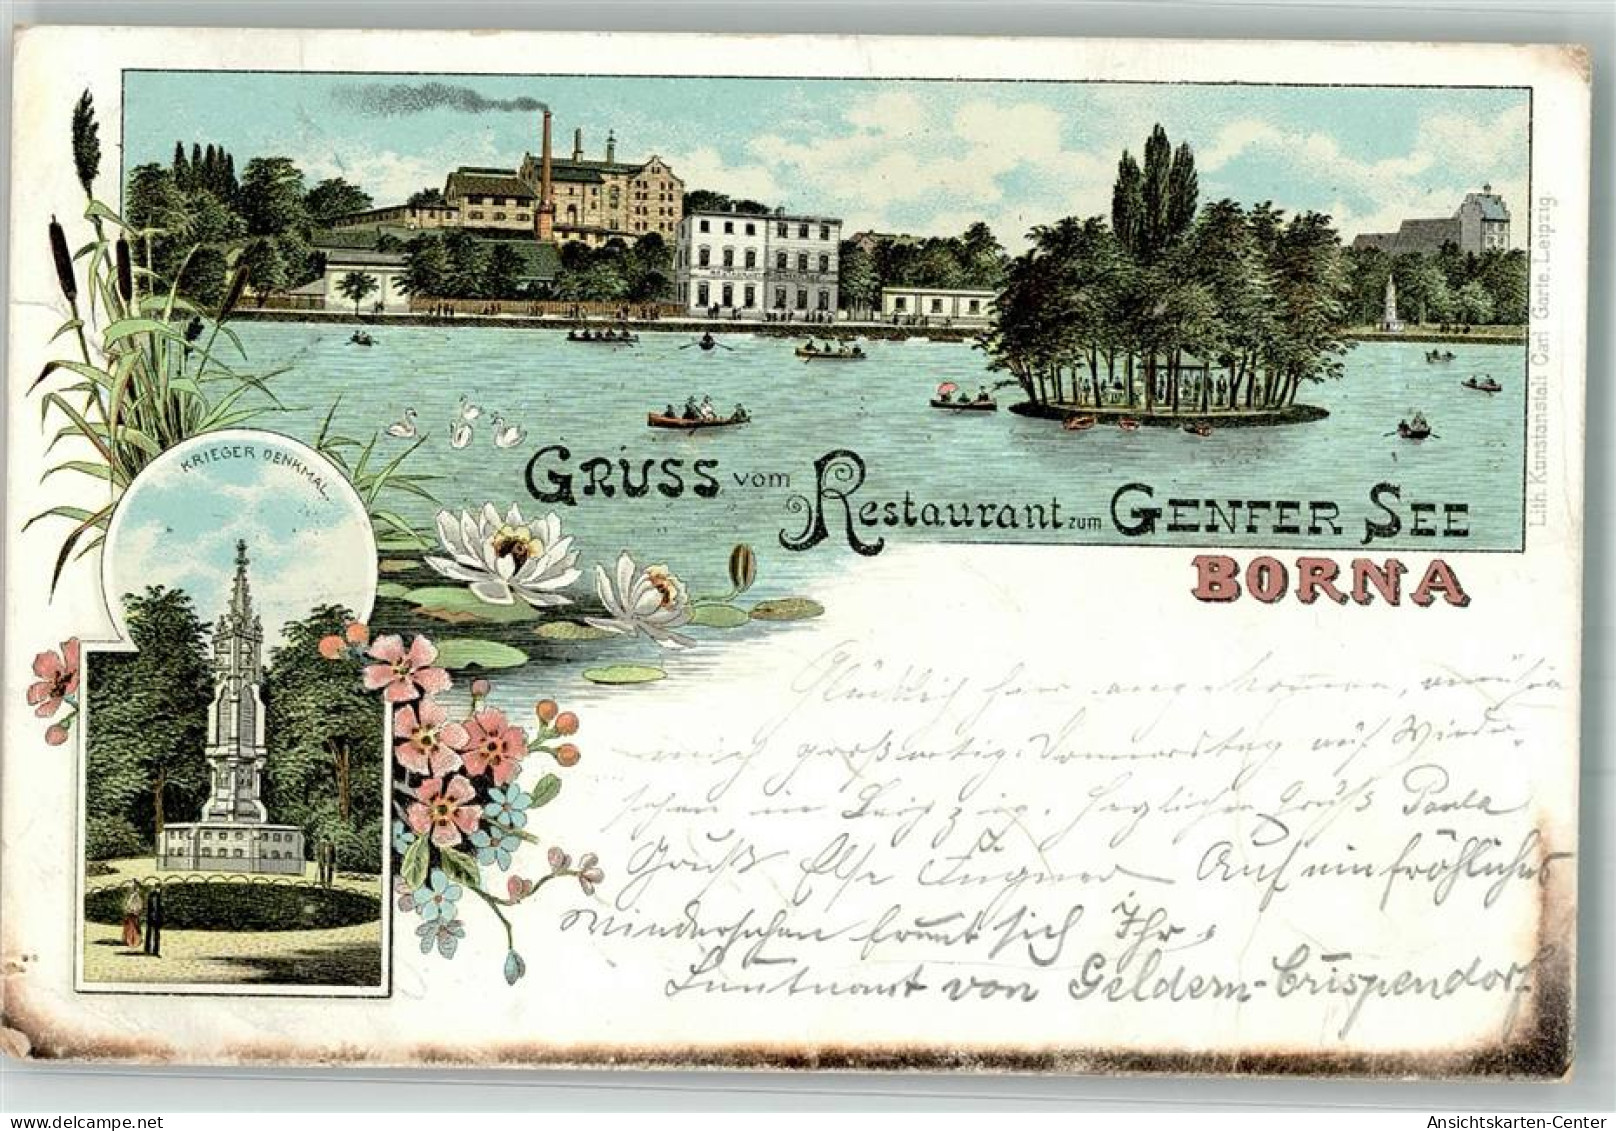 KRIEGER DENKMAL.
GRUSS vom Restaurant zum GENFER SEE
BORNA
Lith. Kunstanstalt Carl Garte, Leipzig.
Glücklich hier angekommen, amüsire
mich großartig. Donnerstag auf Wieder-
sehen in Leipzig. Herzlichen Gruß Paula
Gruß Else Auf ein fröhliches
Wiedersehen freut sich Ihr
Leutnant von Geldern-Crispendorf
Ansichtskarten-Center